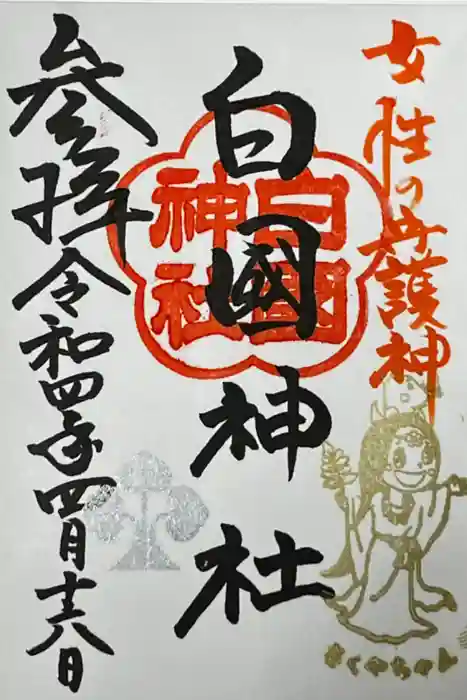 女性の守護神
白國神社
白國
神社
参拝 令和四年四月十八日
さくやちゃん